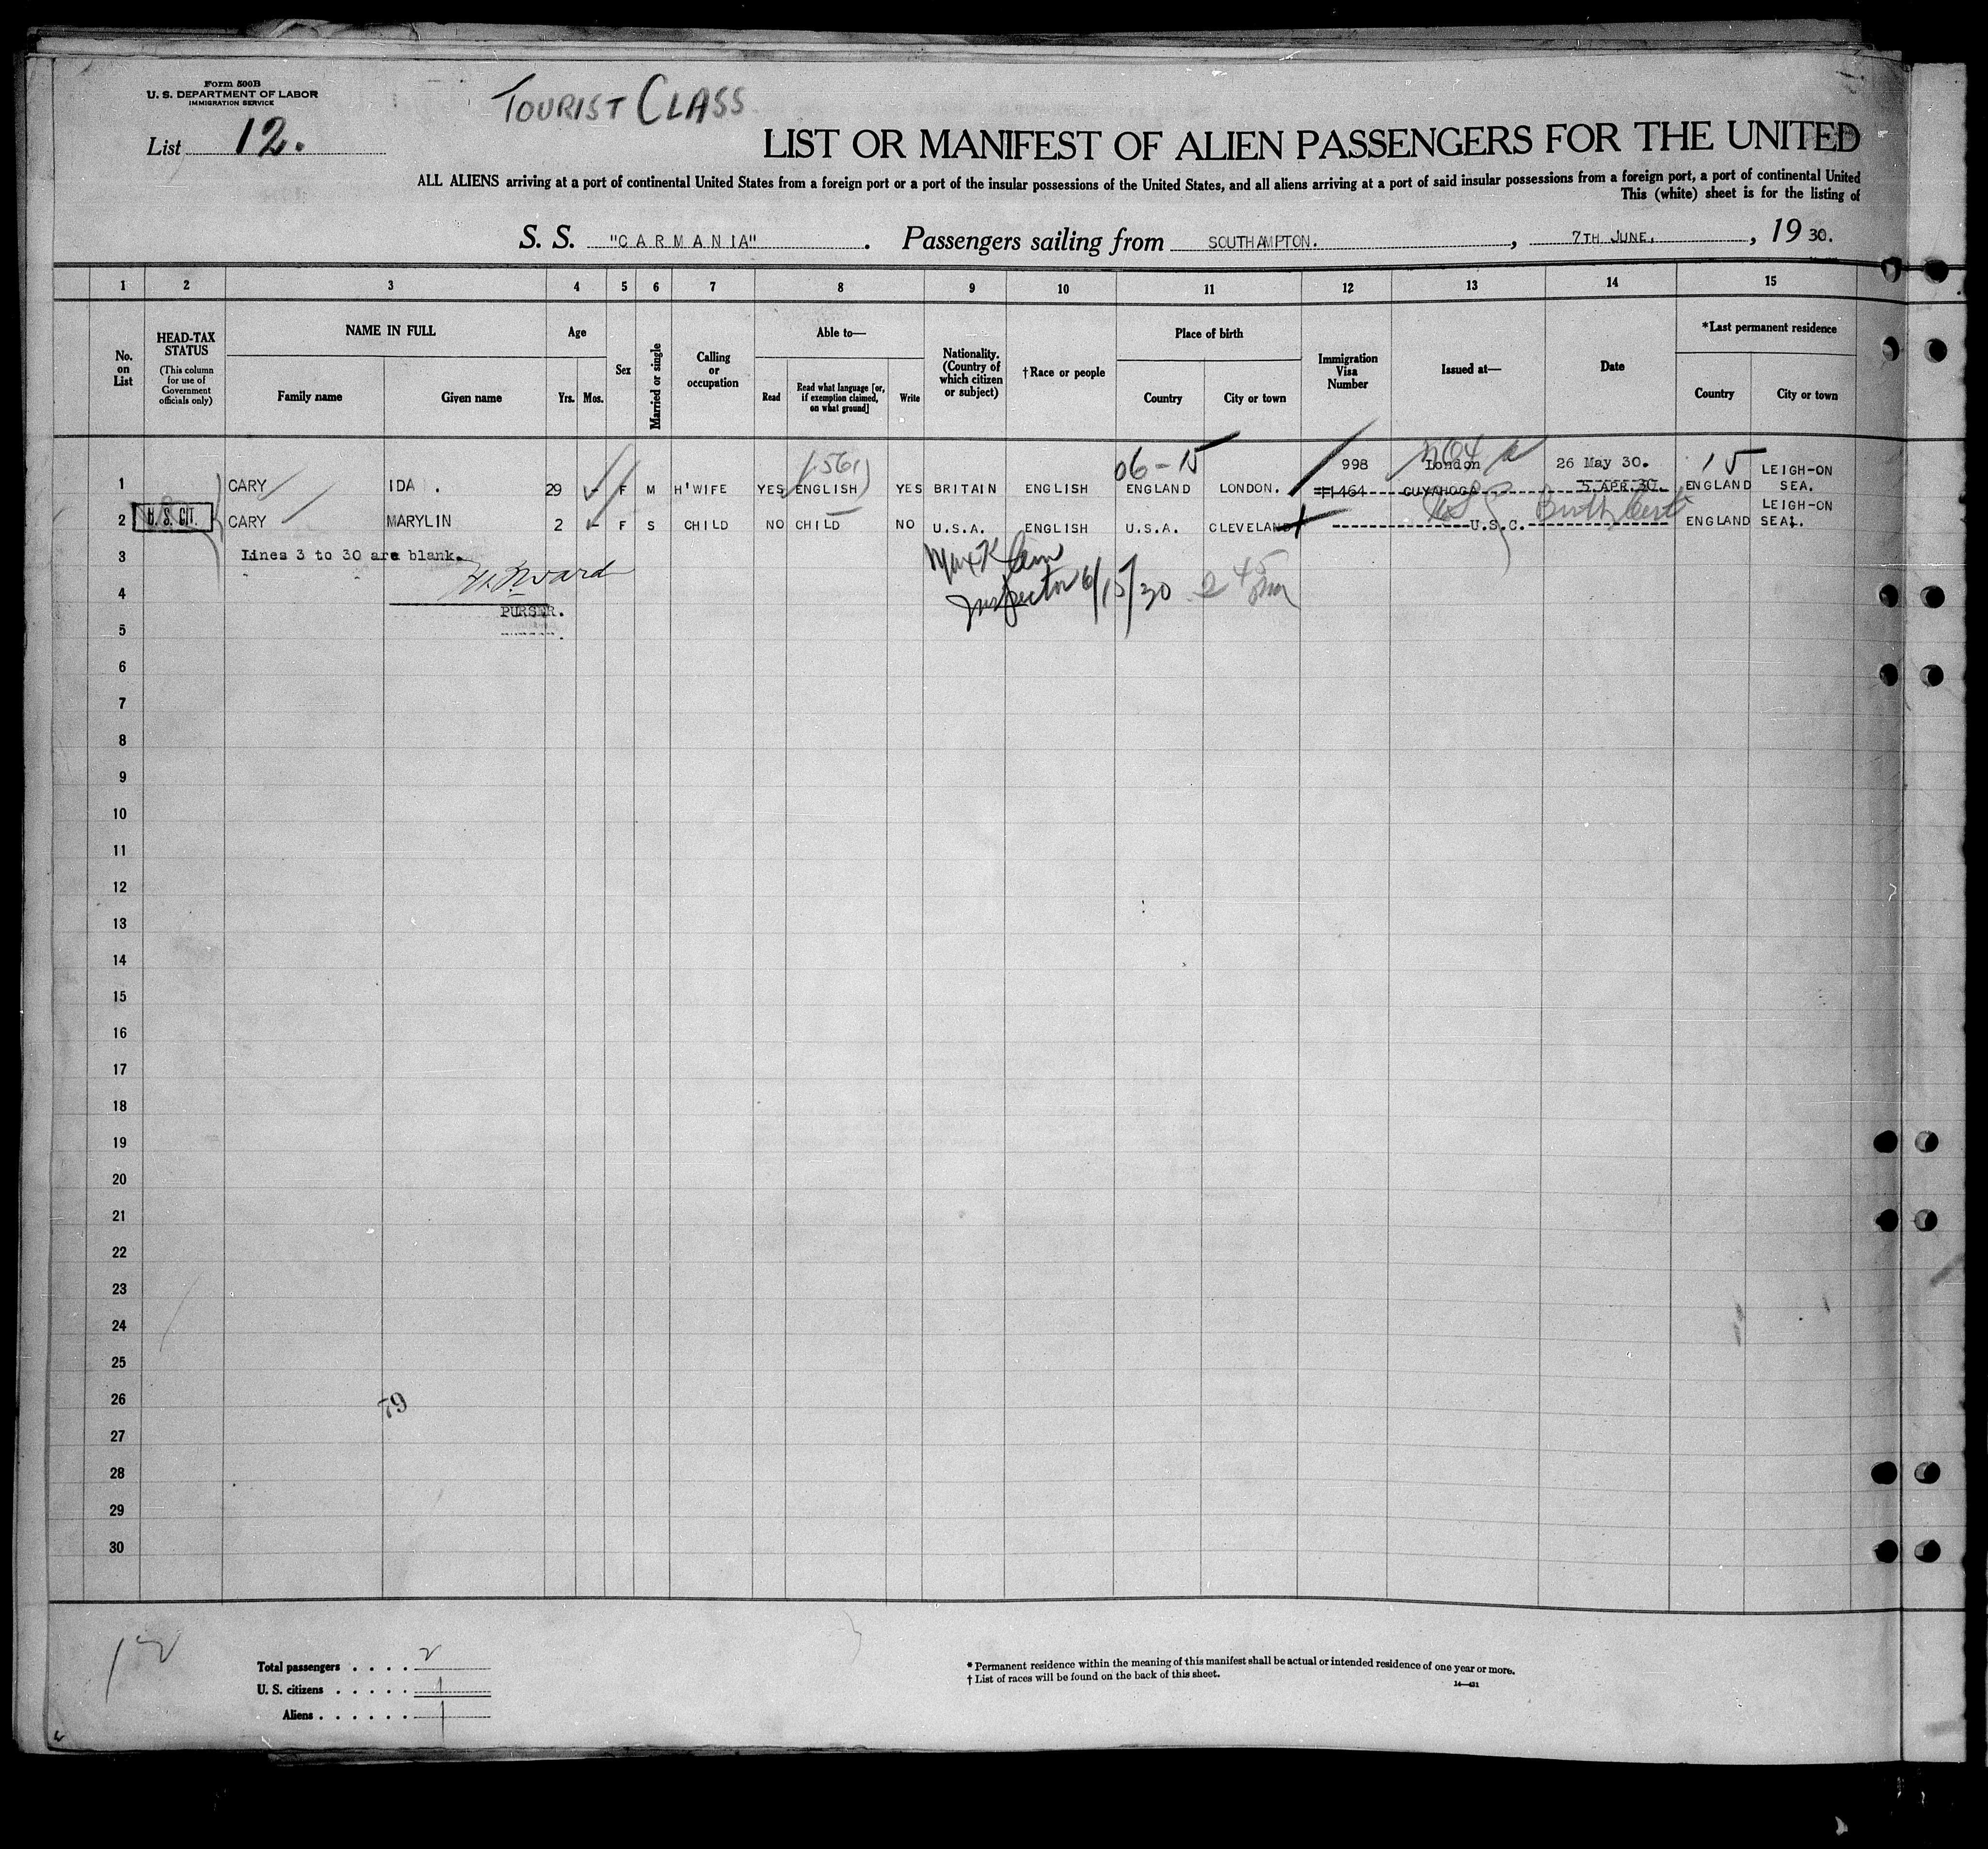 Form 500B
U. S. DEPARTMENT OF LABOR
IMMIGRATION SERVICE
TOURIST CLASS
List 12.
LIST OR MANIFEST OF ALIEN PASSENGERS FOR THE UNITED
ALL ALIENS arriving at a port of continental United States from a foreign port or a port of the insular possessions of the United States, and all aliens arriving at a port of said insular possessions from a foreign port, a port of continental United
This (white) sheet is for the listing of
S. S. "CARMANIA" . Passengers sailing from SOUTHAMPTON. , 7TH JUNE, , 19 30.
1 2 3 4 5 6 7 8 9 10 11 12 13 14 15
No. on List
HEAD-TAX STATUS
(This column for use of Government officials only)
NAME IN FULL
Family name
Given name
Age
Yrs. Mos.
Sex
Married or single
Calling or occupation
Able to—
Read
Read what language [or, if exemption claimed, on what ground]
Write
Nationality. (Country of which citizen or subject)
†Race or people
Place of birth
Country
City or town
Immigration Visa Number
Issued at—
Date
*Last permanent residence
Country
City or town
(561) 06-15 NQ4 15
998 London 26 May 30.
1 CARY IDA . 29 - F M H'WIFE YES ENGLISH YES BRITAIN ENGLISH ENGLAND LONDON. 11464 CUYAHOGA 5 APR.30. ENGLAND LEIGH-ON SEA.
U. S. CIT.
2 CARY MARYLIN 2 - F S CHILD NO CHILD NO U.S.A. ENGLISH U.S.A. CLEVELAND U.S.C. Birth Cert ENGLAND LEIGH-ON SEA.
3 Lines 3 to 30 are blank.
Max Klein
Inspector 6/15/30 2 45 pm
4
PURSER.
5
6
7
8
9
10
11
12
13
14
15
16
17
18
19
20
21
22
23
24
25
26
79
27
28
29
30
12
Total passengers . . . . 2
U. S. citizens . . . . . 1
Aliens . . . . . . 1
* Permanent residence within the meaning of this manifest shall be actual or intended residence of one year or more.
† List of races will be found on the back of this sheet.
14—431